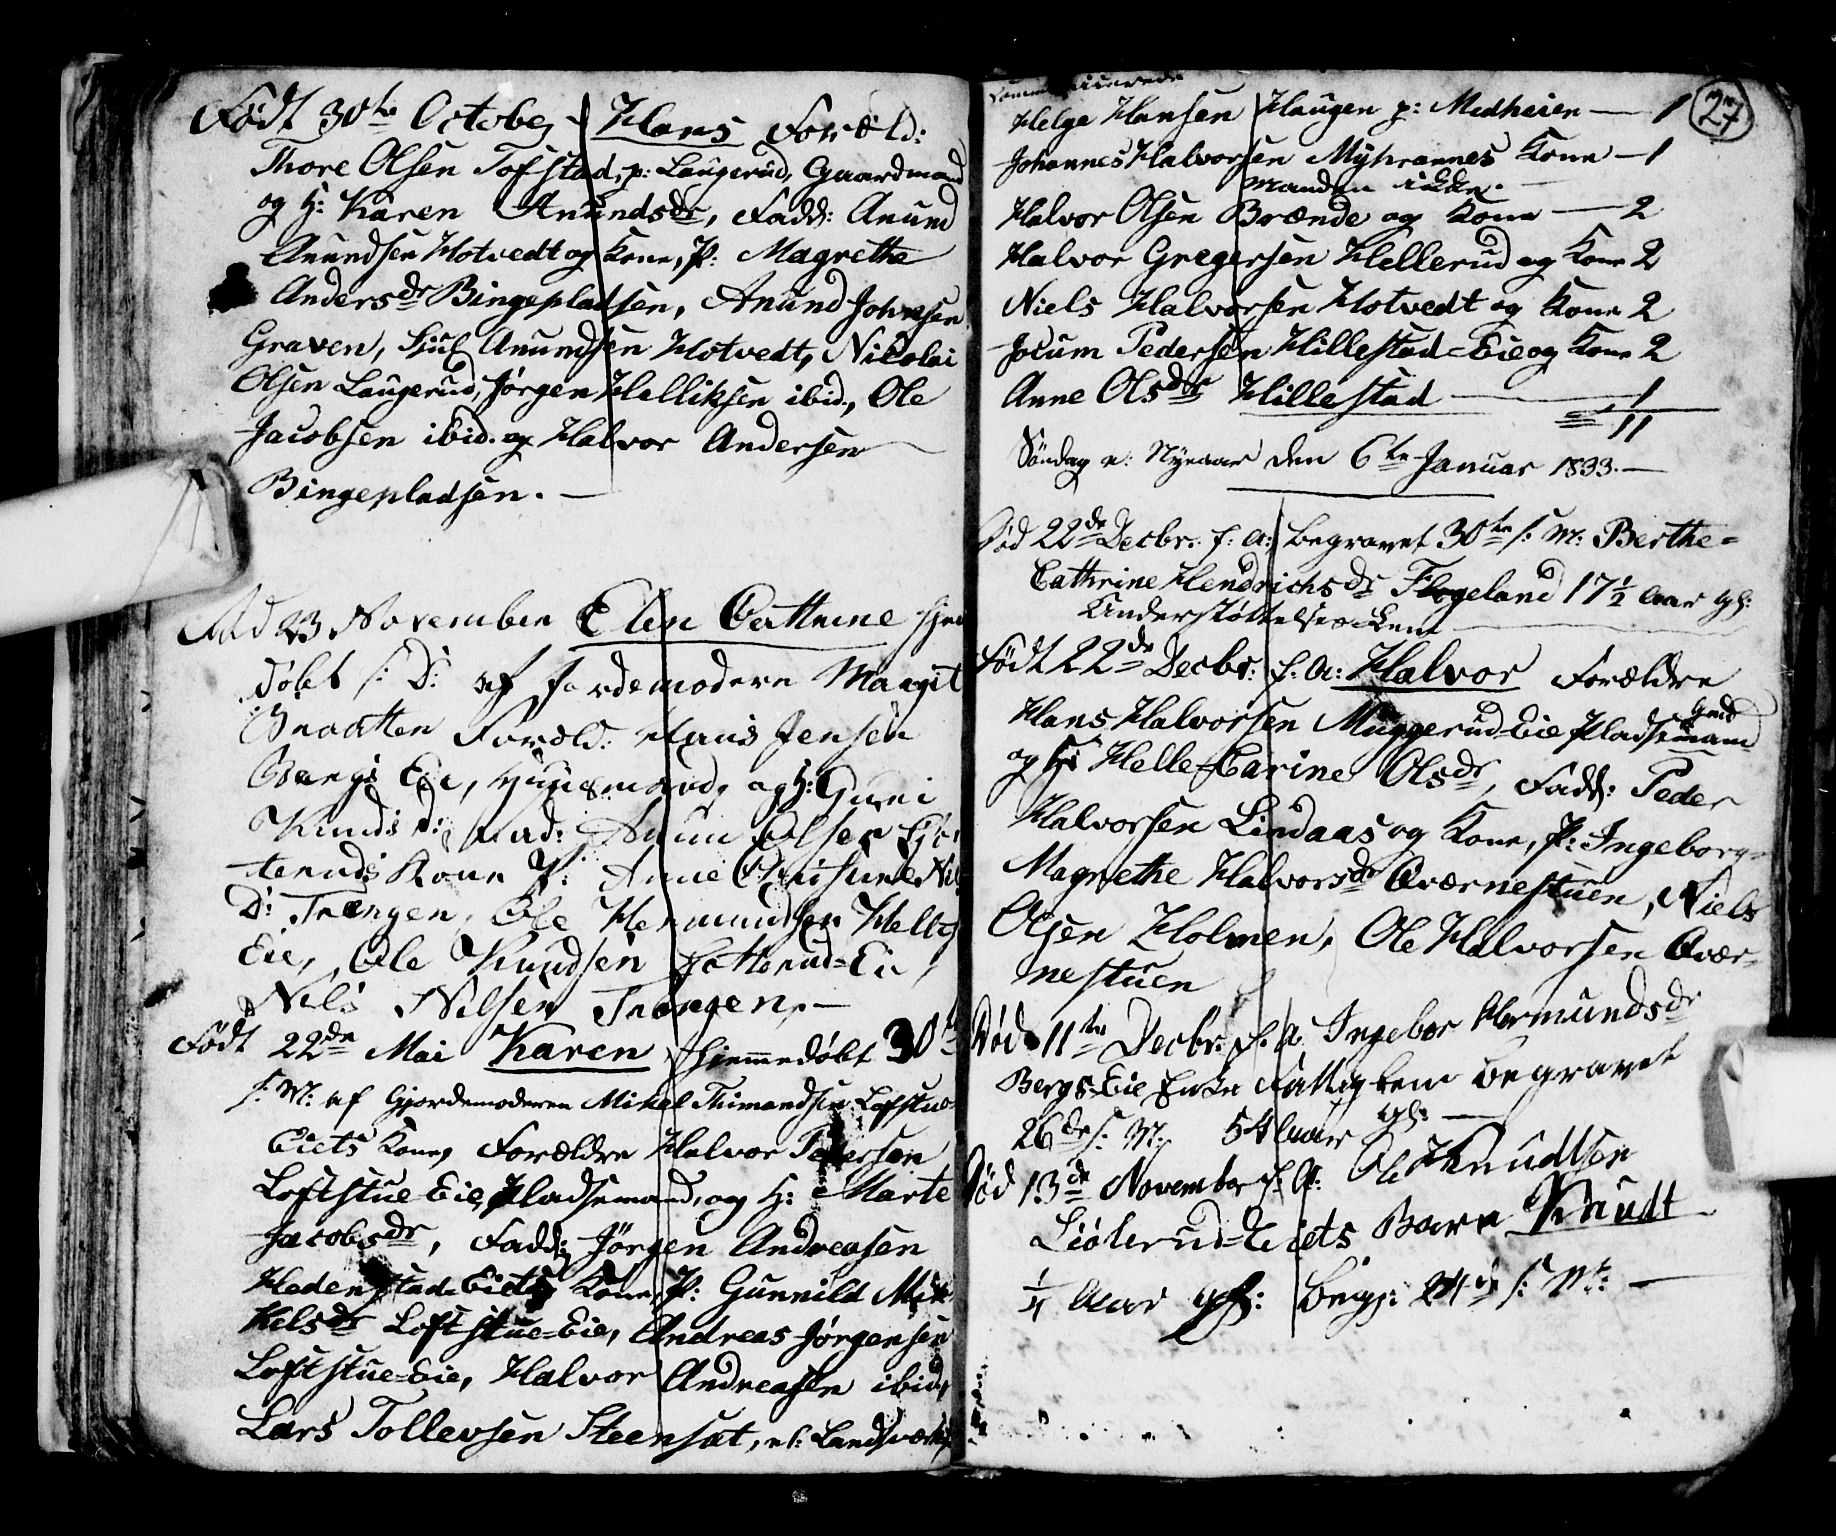 Født 30te October, Hans Foræld:
Thore Olsen Tofstad, p: Laugerud, Gaardmand
og H: Karen Anundsdr, Fadd: Anund
Anundsen Hotvedt og Kone, P: Magrethe
Andersdr Bingepladsen, Anund Johnsen
Graven, Sjul Anundsen Hotvedt, Nicolai
Olsen Laugerud, Jørgen Helliksen ibid., Ole
Jacobsen ibid. og Halvor Andersen
Bingepladsen. —
23 November Elen Cathrine hjem
døbt s: D: af Jordemodern Maagit
Braatten Foræld: Hans Jensen
Bergs Eie, Huusmand, og H: Guni
Knuds D: Fad: Olsen
teruds Kone P: Anne Christine Nil
D: Trængen, Ole Hermundsen Helle
Eie, Ole Knudsen Eie,
Nils Nilsen Trængen, —
Født 22de Mai Karen hjemmedøbt 30te
s: M: af Gjordemoderen Mikel Thimandsen Lofstue
Eiets Kone, Forældre Halvor Pedersen
Loftstue-Eie, Pladsemand, og H: Marte
Jacobsdr, Fadd: Jørgen Andreasen
Hedenstad-Eiets Kone, P: Gunnild Mik
kelsdr Loftstue-Eie, Andreas Jørgensen
Loftstue-Eie, Halvor Andreasen ibid,
Lars Tollevsen Steensat, Landsværk
27
Communicerede
Helge Hansen Haugen p: Medheien — 1
Johannes Halvorsen Myhrannes Kone — 1
Manden ikke. —
Halvor Olsen Brænde og Kone — 2
Halvor Gregersen Hellerud og Kone 2
Niels Halvorsen Hotvedt og Kone 2
Jocum Pedersen Hillestad-Eie og Kone 2
Anne Olsdr Hillestad — 1
11
Søndag e: Nyeaar den 6te Januar 1833. —
Død 22de Decbr: f: A: begravet 30te s: M: Berthe-
Cathrine Hendrichsdr Flogeland 17½ Aar gl:
Understøttelses-Lem
Født 22de Decbr: f: A: Halvor Forældre
Hans Halvorsen Muggerud-Eie Pladsemand
og H: Helle-Carine Olsdr, Fadd: Peder
Halvorsen Lindaas og Kone, P: Ingeborg-
Magrethe Halvorsdr Qværnestuen, Niels
Olsen Holmen, Ole Halvorsen Qvær-
nestuen
Død 11te Decbr: f: A: Ingebor Hermundsdr
Bergs-Eie Enke Fattiglem begravet
26de s: M: 54 Aar gl: —
Død 13de November f: A: Ole Knudtsen
Eiets Barn Knudt
¼ Aar gl: Begr: 24de s: M: —